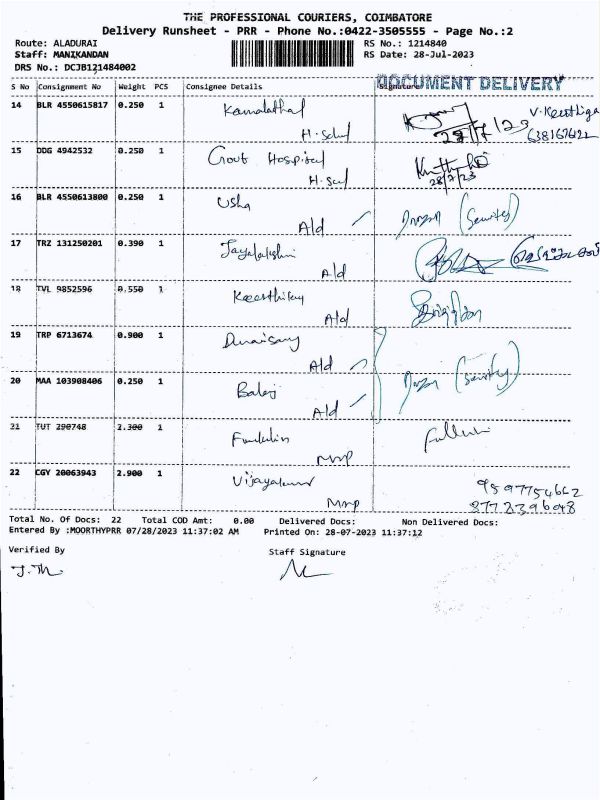 THE PROFESSIONAL COURIERS, COIMBATORE
Delivery Runsheet - PRR - Phone No.:0422-3505555 - Page No.:2
Route: ALADURAI RS No.: 1214840
Staff: MANIKANDAN RS Date: 28-Jul-2023
DRS No.: DCJB121484002
DOCUMENT DELIVERY
S No Consignment No Weight PCS Consignee Details Signature
14 BLR 4550615817 0.250 1 Kamalathal
H. School V. Keerthiga
15 DDG 4942532 0.250 1 Govt Hospital
28/7/23
16 BLR 4550613800 0.250 1 Usha
Ald (Security)
17 TRZ 131250201 0.390 1 Jayalakshmi
Ald
18 TVL 9852596 0.550 1
Ald
19 TRP 6713674 0.900 1 Duraisamy
Ald
20 MAA 103908406 0.250 1 Balaji (Security)
Ald
21 TUT 290748 2.300 1
22 CGY 20063943 2.900 1 Vijayakumar
9597754662
Total No. Of Docs: 22 Total COD Amt: 0.00 Delivered Docs: Non Delivered Docs:
Entered By :MOORTHYPRR 07/28/2023 11:37:02 AM Printed On: 28-07-2023 11:37:12
Verified By Staff Signature